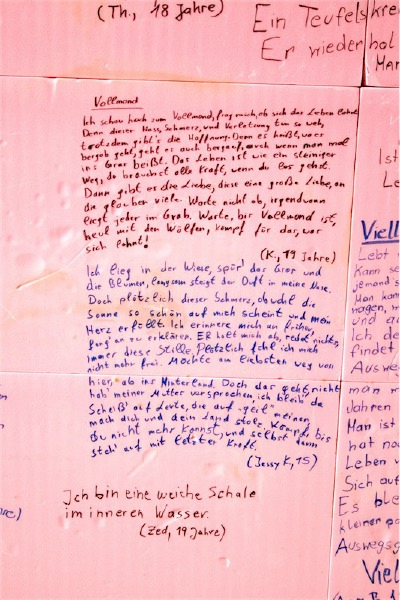 (Th., 18 Jahre)
Ein Teufelskre
Er wieder hol
Mar
Vollmond
Ich schau hoch zum Vollmond, frag mich, ob sich das Leben lohnt.
Denn dieser Hass, Schmerz, und Verletzung tun so weh,
trotzdem gibt's die Hoffnung. Denn es heißt, wo es
bergab geht, geht es auch bergauf, auch wenn man mal
ins Gras beißt. Das Leben ist wie ein steiniger
Weg, du brauchst alle Kraft, wenn du los gehst.
Dann gibt es die Liebe, diese eine große Liebe, an
die glauben viele. Warte nicht ab, irgendwann
liegt jeder im Grab. Warte, bis Vollmond ist,
heul mit den Wölfen, kämpf für das, was
sich lohnt!
(K., 19 Jahre)
Ich lieg in der Wiese, spür' das Gras und
die Blumen, langsam steigt der Duft in meine Nase.
Doch plötzlich dieser Schmerz, obwohl die
Sonne so schön auf mich scheint und mein
Herz erfüllt. Ich erinnere mich an früher,
fang' an zu erklären. ER hält mich ab, redet nicht,
immer diese Stille. Plötzlich fühl ich mich
nicht mehr frei. Möchte am liebsten weg von
hier, ab ins Hinterland. Doch das geht nicht
hab' meiner Mutter versprochen, ich bleib' da
Scheiß' auf Leute, die auf "geil" meinen,
mach dich und dein Land stolz. Kämpf, bis
du nicht mehr kannst, und selbst dann
steh' auf mit letzter Kraft.
(Jessy K, 15)
Ich bin eine weiche Schale
im inneren Wasser.
(Zed, 19 Jahre)
Ist
Le
Viell
Lebt
Kann se
jemand's
Man kann
und
Ich de
findet
Ausweg
man
Jahren
Man ist
hat noc
Leben v
Sich auf
Es ble
kleiner pa
Auswegs
Viel